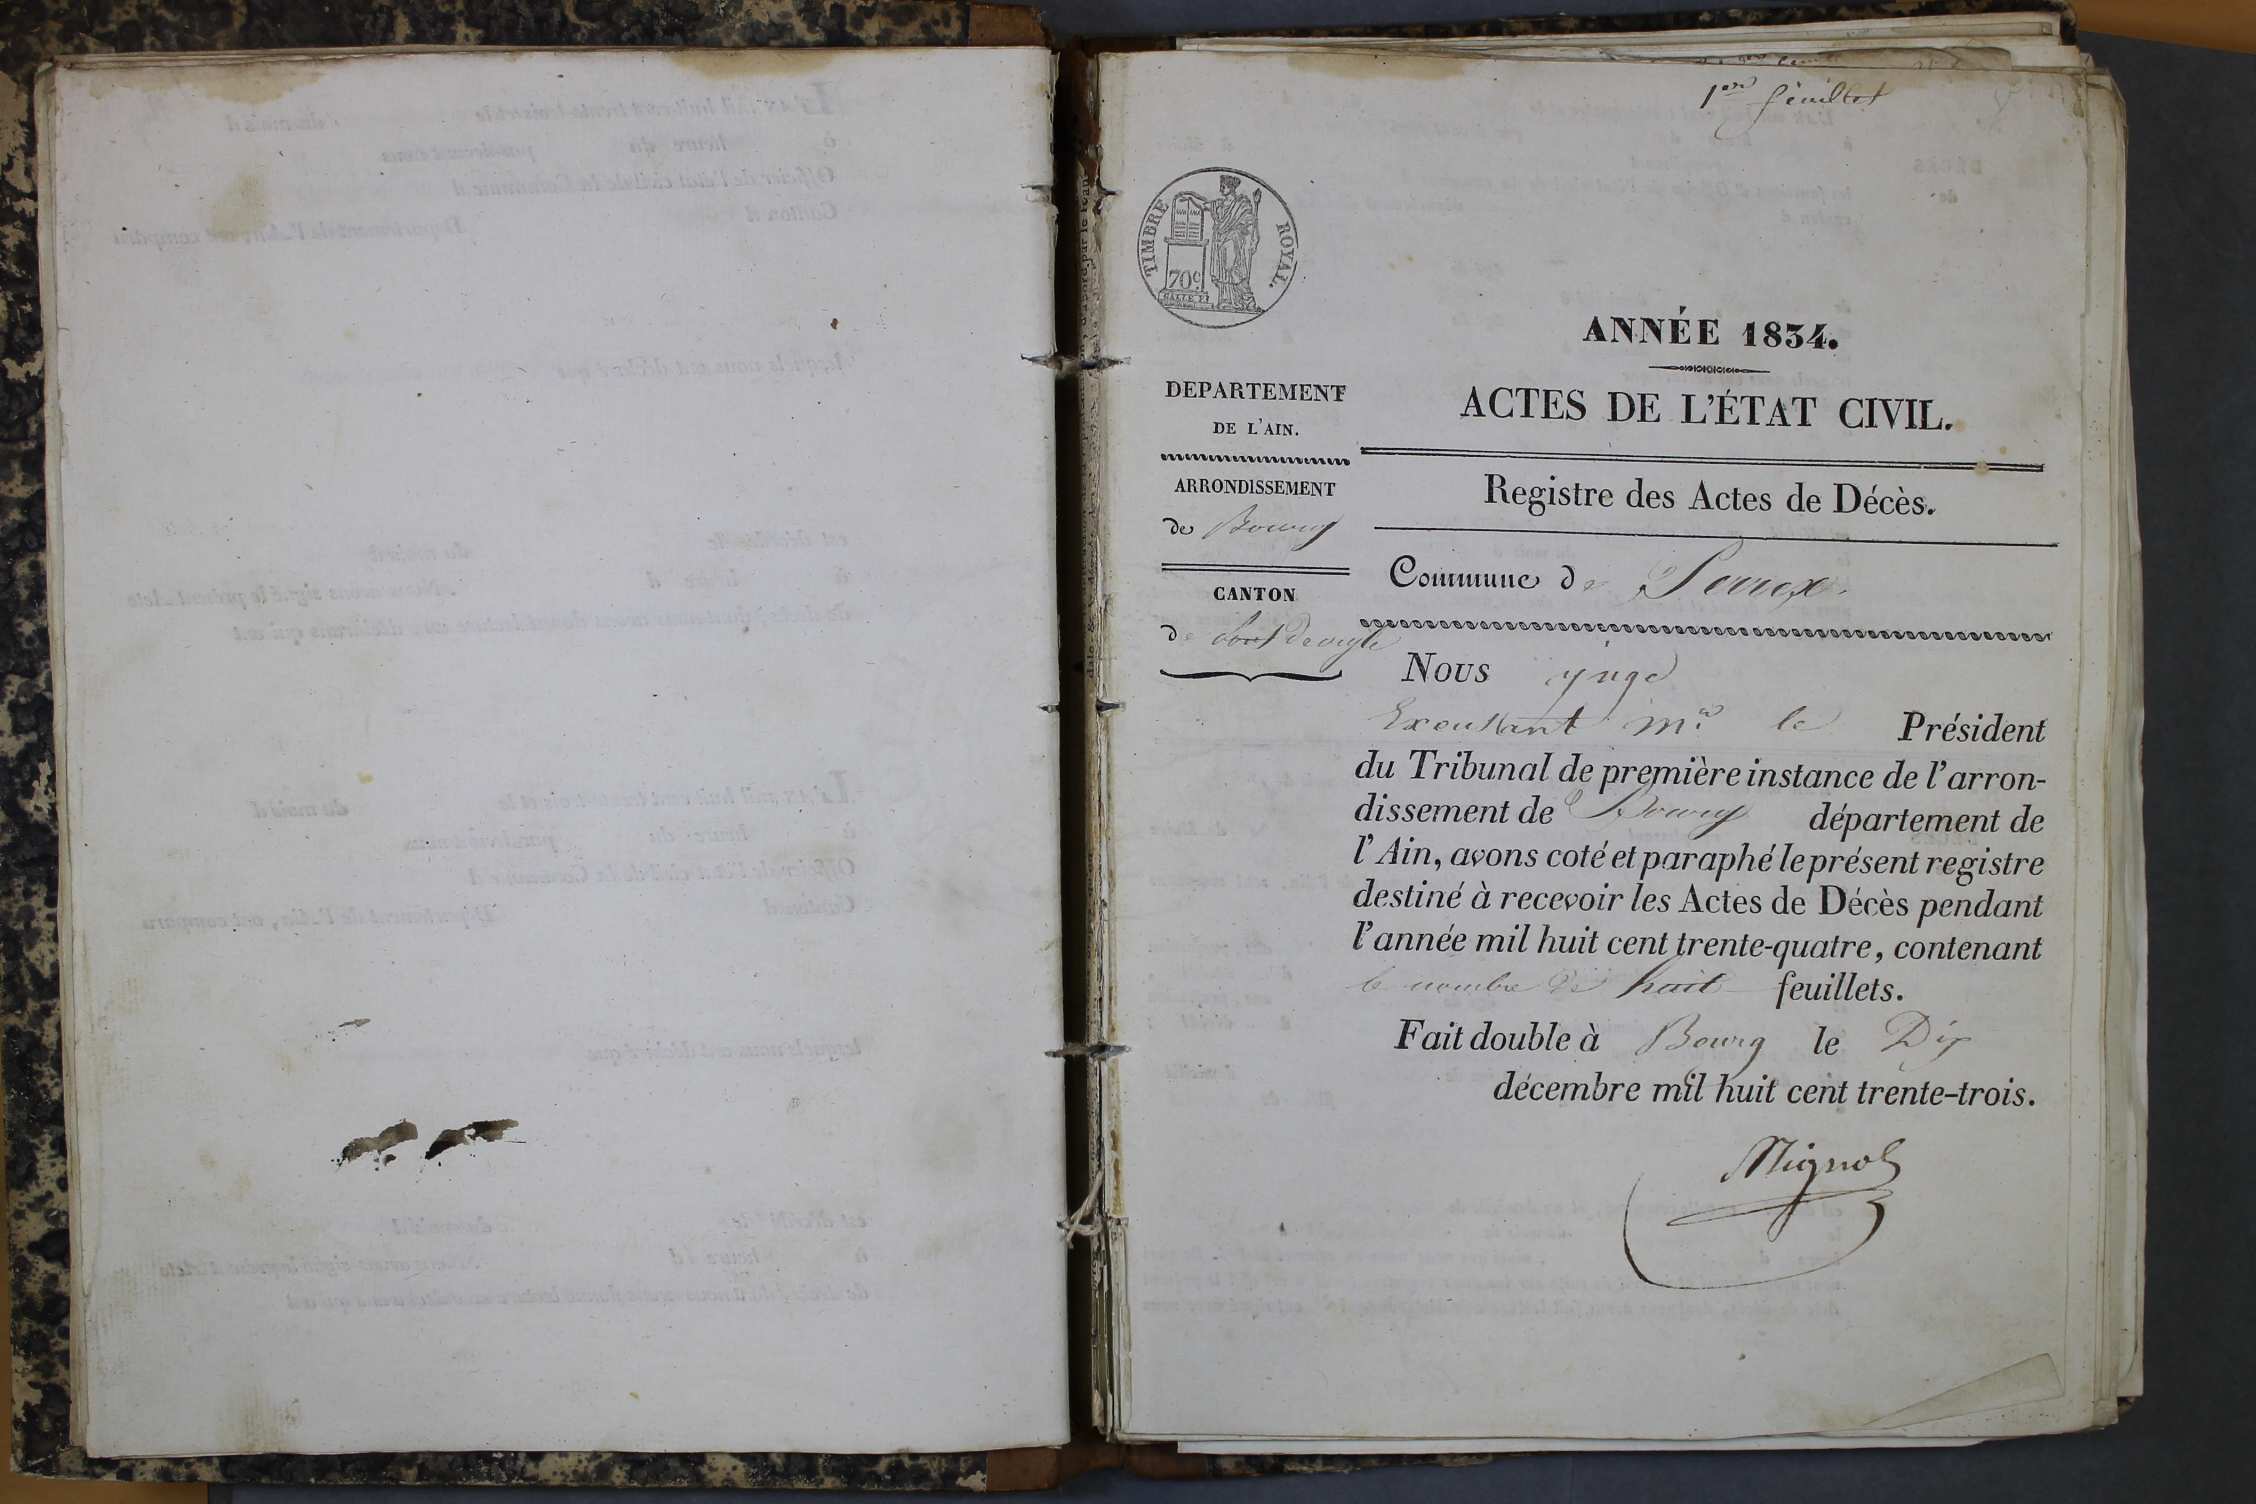 1er feuillet
TIMBRE ROYAL.
70c.
ANNÉE 1834.
DEPARTEMENT
DE L'AIN.
ACTES DE L'ÉTAT CIVIL.
ARRONDISSEMENT
de Bourg
Registre des Actes de Décès.
CANTON
de
Commune de Perrex.
Nous juge
Exerçant Mr. le Président
du Tribunal de première instance de l'arron-
dissement de Bourg département de
l'Ain, avons coté et paraphé le présent registre
destiné à recevoir les Actes de Décès pendant
l'année mil huit cent trente-quatre, contenant
le nombre de huit feuillets.
Fait double à Bourg le Dix
décembre mil huit cent trente-trois.
Mignot